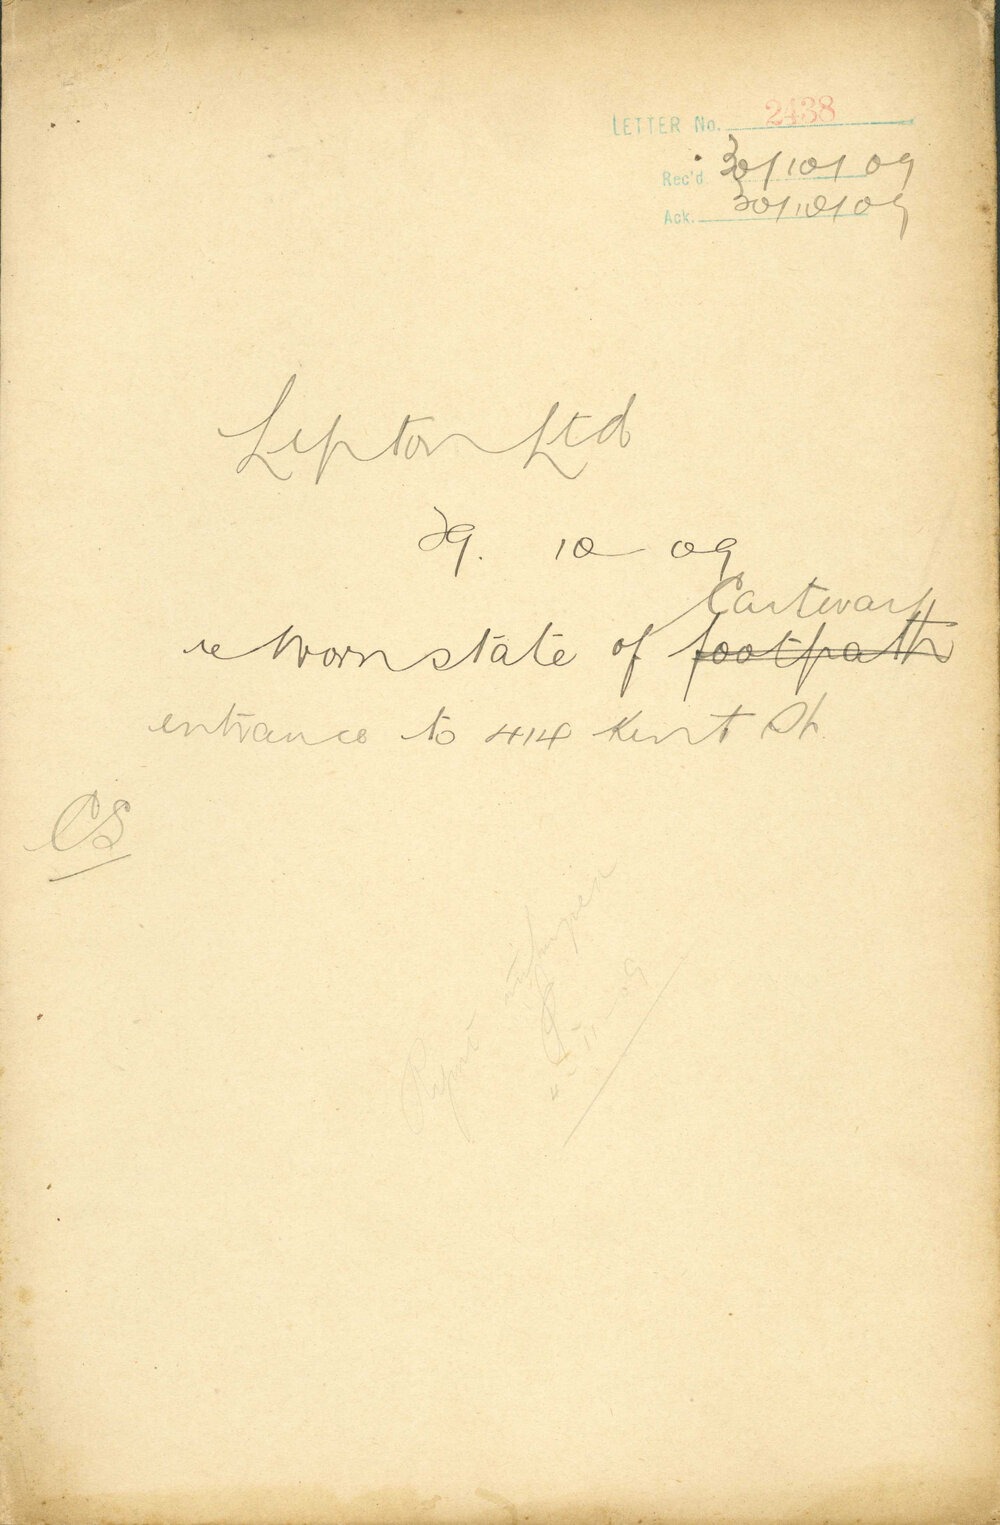 LETTER No. 2438
Rec'd. 30/10/09
Ack. 30/10/09
Lipton Ltd
29. 10 09
Cartway
re worn state of footpath
entrance to 414 Kent St.
CS
4-11-09